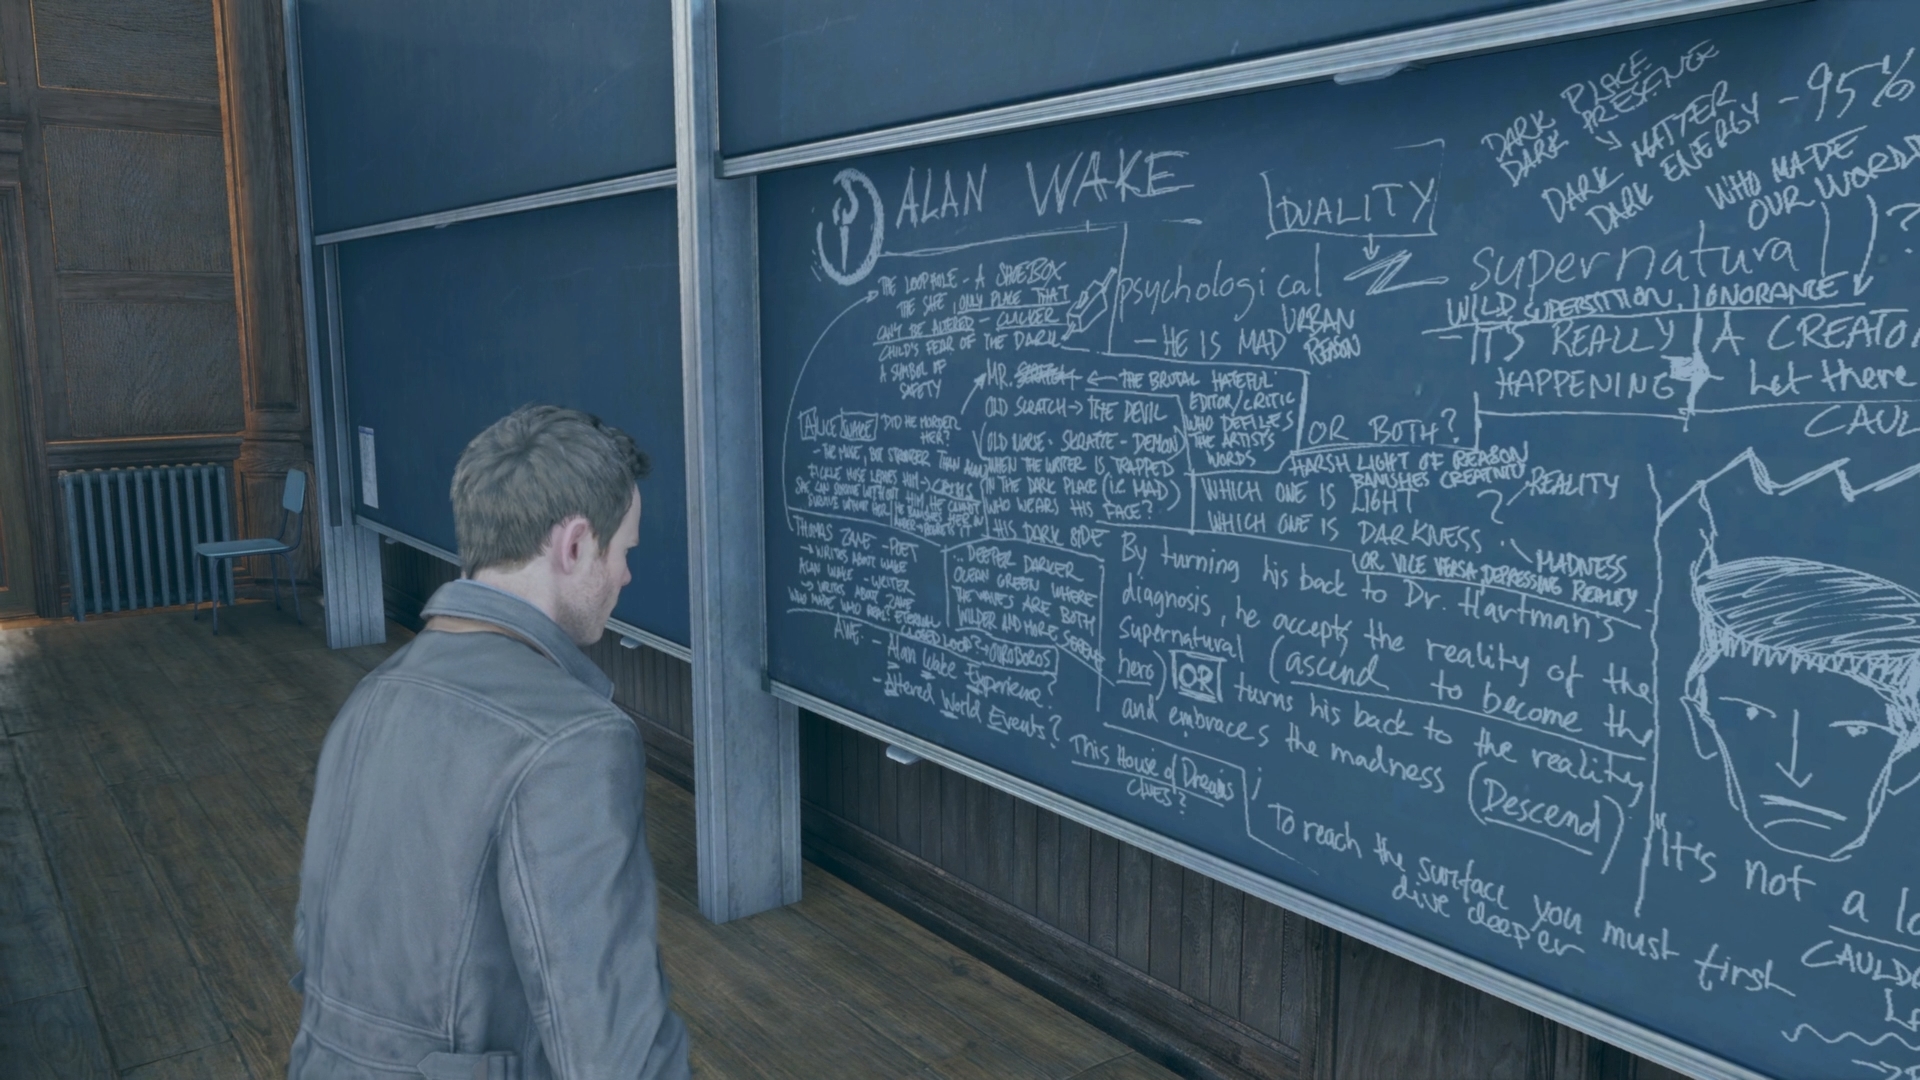 ALAN WAKE
THE LOOPHOLE - A SHOEBOX
THE SAFE ONLY PLACE THAT
CAN'T BE ALTERED - CLICKER
CHILD'S FEAR OF THE DARK
A SYMBOL OF
SAFETY
MR. SCRATCH ← THE BRUTAL HATEFUL
EDITOR/CRITIC
WHO DEFILES
THE ARTIST'S
WORDS
OLD SCRATCH → THE DEVIL
OLD NORSE - SKRATTE - DEMON
WHEN THE WRITER IS TRAPPED
IN THE DARK PLACE (I.E. MAD)
WHO WEARS HIS
FACE?
HIS DARK SIDE
ALICE WAKE DID HE MURDER
HER?
- THE MUSE, BUT STRONGER THAN ALAN
FICKLE MUSE LEAVES HIM → CRISIS
SHE CAN SURVIVE WITHOUT HIM, HE CANNOT
SURVIVE WITHOUT HER
THOMAS ZANE - POET
→ WRITES ABOUT WAKE
ALAN WAKE - WRITER
→ WRITES ABOUT ZANE
WHO MADE WHO REAL? ETERNAL
CLOSED LOOP? → OUROBOROS
DEEPER DARKER
OCEAN GREEN WHERE
THE WAVES ARE BOTH
WILDER AND MORE SERENE
AWE: - Alan Wake Experience?
- Altered World Events?
This House of Dreams
CLUES?
DUALITY
psychological
- HE IS MAD
URBAN
REASON
supernatural
WILD SUPERSTITION, IGNORANCE
- IT'S REALLY
HAPPENING
A CREATO
Let there
CAUL
DARK PLACE
DARK PRESENCE
DARK MATTER
DARK ENERGY
- 95%
WHO MADE
OUR WORLD
?
OR BOTH?
HARSH LIGHT OF REASON
BANISHES CREATIVITY
WHICH ONE IS LIGHT
WHICH ONE IS DARKNESS
?
REALITY
MADNESS
OR VICE VERSA: DEPRESSING REALITY
By turning his back to Dr. Hartman's
diagnosis, he accepts the reality of the
supernatural (ascend to become the
hero) OR turns his back to the reality
and embraces the madness (Descend)
To reach the surface you must first
dive deeper
"It's not a l
CAULD